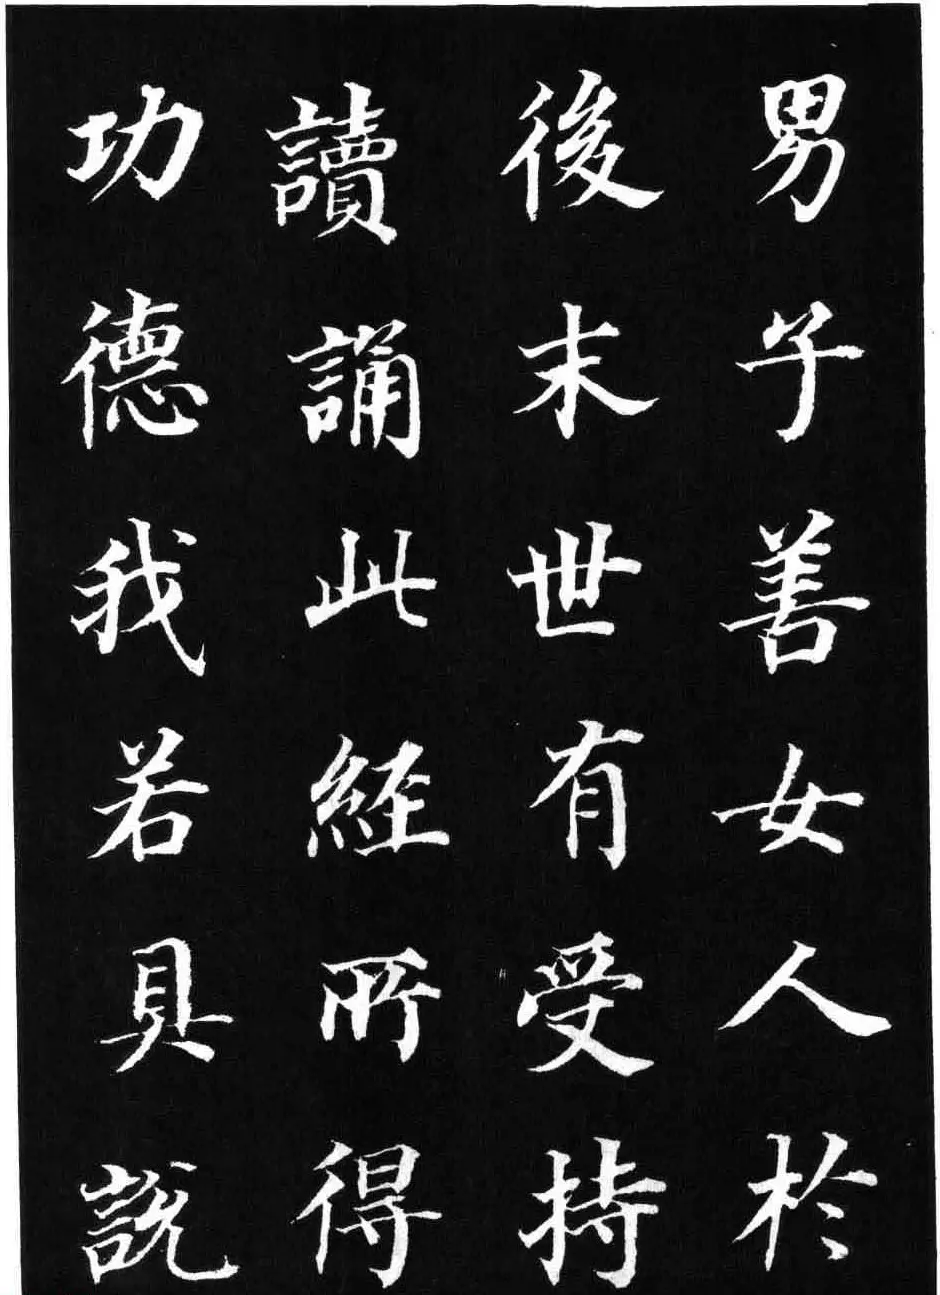 男子善女人於
後末世有受持
讀誦此經所得
功德我若具說